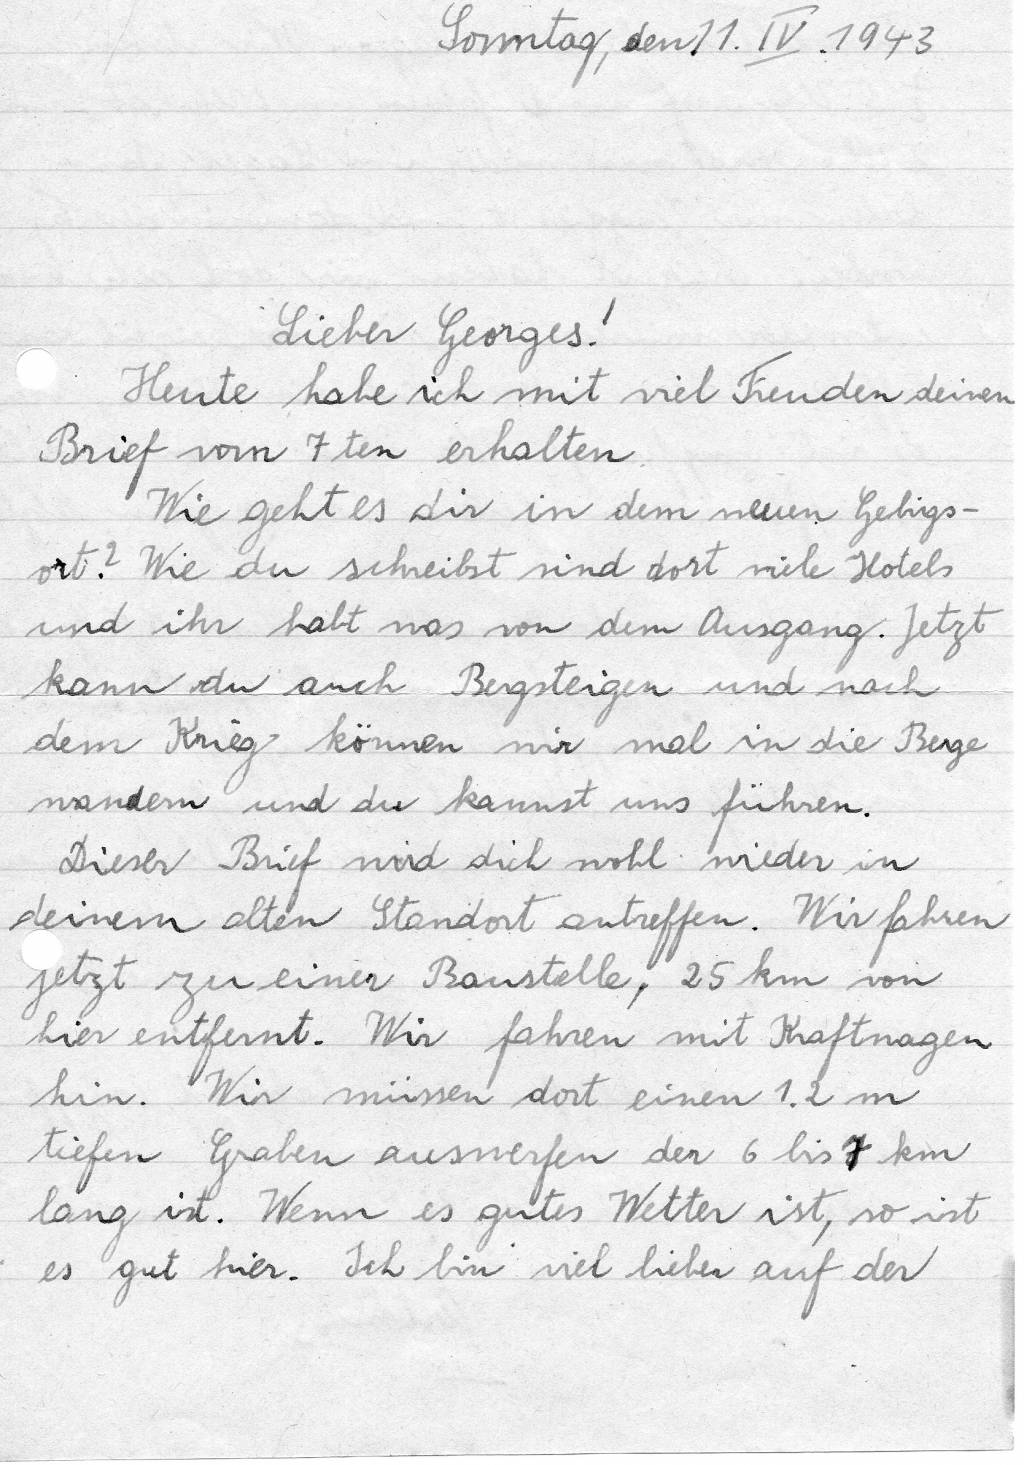 Sonntag, den 11. IV. 1943
Lieber Georges!
Heute habe ich mit viel Freuden deinen
Brief vom 7ten erhalten.
Wie geht es dir in dem neuen Gebirgs-
ort? Wie du schreibst sind dort viele Hotels
und ihr habt was von dem Ausgang. Jetzt
kann du auch Bergsteigen und nach
dem Krieg können wir mal in die Berge
wandern und du kannst uns führen.
Dieser Brief wird dich wohl wieder in
deinem alten Standort antreffen. Wir fahren
jetzt zu einer Baustelle, 25 km von
hier entfernt. Wir fahren mit Kraftwagen
hin. Wir müssen dort einen 1.2 m
tiefen Graben auswerfen der 6 bis 7 km
lang ist. Wenn es gutes Wetter ist, so ist
es gut hier. Ich bin viel lieber auf der